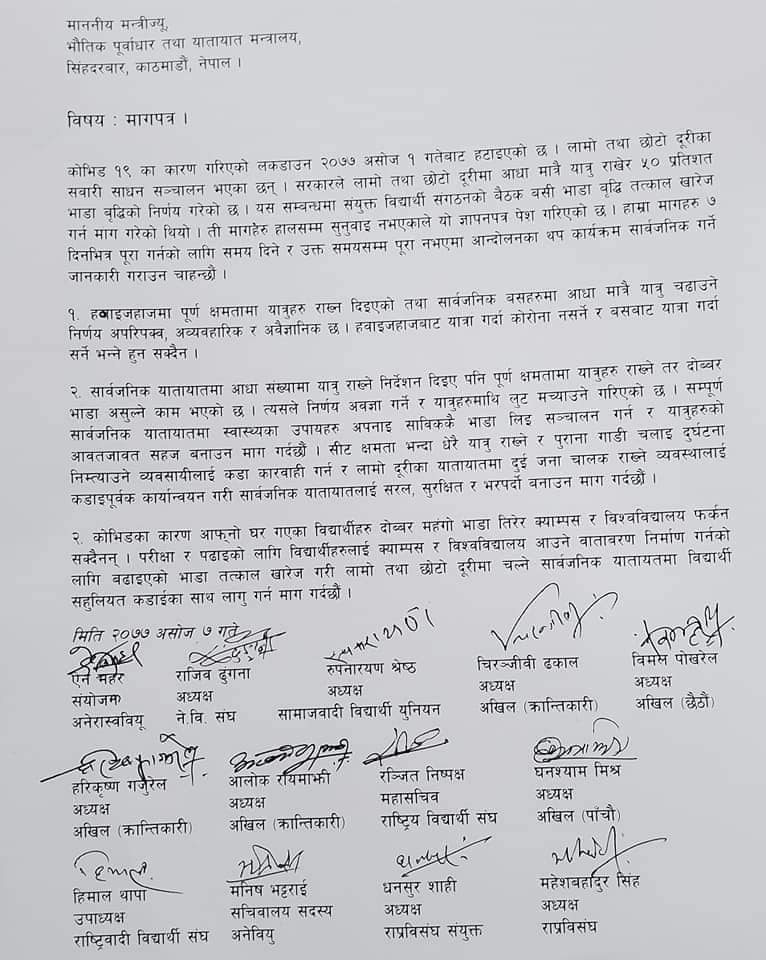 माननीय मन्त्रीज्यू,
भौतिक पूर्वाधार तथा यातायात मन्त्रालय,
सिंहदरबार, काठमाडौं, नेपाल ।
विषय : मागपत्र ।
कोभिड १९ का कारण गरिएको लकडाउन २०७७ असोज १ गतेबाट हटाइएको छ । लामो तथा छोटो दूरीका
सवारी साधन सञ्चालन भएका छन् । सरकारले लामो तथा छोटो दूरीमा आधा मात्रै यात्रु राखेर ५० प्रतिशत
भाडा बृद्धिको निर्णय गरेको छ । यस सम्बन्धमा संयुक्त विद्यार्थी संगठनको बैठक बसी भाडा वृद्धि तत्काल खारेज
गर्न माग गरेको थियो । ती मागहेरु हालसम्म सुनुवाइ नभएकाले यो ज्ञापनपत्र पेश गरिएको छ । हाम्रा मागहरु ७
दिनभित्र पूरा गर्नको लागि समय दिने र उक्त समयसम्म पूरा नभएमा आन्दोलनका थप कार्यक्रम सार्वजनिक गर्ने
जानकारी गराउन चाहन्छौं ।
१. हवाइजहाजमा पूर्ण क्षमतामा यात्रुहरु राख्न दिइएको तथा सार्वजनिक बसहरुमा आधा मात्रै यात्रु चढाउने
निर्णय अपरिपक्व, अव्यवहारिक र अवैज्ञानिक छ । हवाइजहाजबाट यात्रा गर्दा कोरोना नसर्ने र बसबाट यात्रा गर्दा
सर्ने भन्ने हुन सक्दैन ।
२. सार्वजनिक यातायातमा आधा संख्यामा यात्रु राख्ने निर्देशन दिइए पनि पूर्ण क्षमतामा यात्रुहरु राख्ने तर दोब्बर
भाडा असुल्ने काम भएको छ । त्यसले निर्णय अवज्ञा गर्ने र यात्रुहरुमाथि लुट मच्याउने गरिएको छ । सम्पूर्ण
सार्वजनिक यातायातमा स्वास्थ्यका उपायहरु अपनाइ साविककै भाडा लिइ सञ्चालन गर्न र यात्रुहरुको
आवतजावत सहज बनाउन माग गर्दछौं । सीट क्षमता भन्दा धेरै यात्रु राख्ने र पुराना गाडी चलाइ दुर्घटना
निम्त्याउने व्यवसायीलाई कडा कारवाही गर्न र लामो दूरीका यातायातमा दुई जना चालक राख्ने व्यवस्थालाई
कडाइपूर्वक कार्यान्वयन गरी सार्वजनिक यातायातलाई सरल, सुरक्षित र भरपर्दो बनाउन माग गर्दछौं ।
२. कोभिडका कारण आफ्नो घर गएका विद्यार्थीहरु दोब्बर महंगो भाडा तिरेर क्याम्पस र विश्वविद्यालय फर्कन
सक्दैनन् । परीक्षा र पढाइको लागि विद्यार्थीहरुलाई क्याम्पस र विश्वविद्यालय आउने वातावरण निर्माण गर्नको
लागि बढाइएको भाडा तत्काल खारेज गरी लामो तथा छोटो दूरीमा चल्ने सार्वजनिक यातायतमा विद्यार्थी
सहुलियत कडाईका साथ लागु गर्न माग गर्दछौं ।
मिति २०७७ असोज ७ गते
ऐन महर राजिव ढुंगना रुपनारायण श्रेष्ठ चिरञ्जीवी ढकाल विमल पोखरेल
संयोजक अध्यक्ष अध्यक्ष अध्यक्ष अध्यक्ष
अनेरास्ववियू ने.वि. संघ सामाजवादी विद्यार्थी युनियन अखिल (क्रान्तिकारी) अखिल (छैठौं)
हरिकृष्ण गजुरेल आलोक रायमाझी रञ्जित निष्पक्ष घनश्याम मिश्र
अध्यक्ष अध्यक्ष महासचिव अध्यक्ष
अखिल (क्रान्तिकारी) अखिल (क्रान्तिकारी) राष्ट्रिय विद्यार्थी संघ अखिल (पाँचौ)
हिमाल थापा मनिष भट्टराई धनसुर शाही महेशबहादुर सिंह
उपाध्यक्ष सचिवालय सदस्य अध्यक्ष अध्यक्ष
राष्ट्रिवादी विद्यार्थी संघ अनेवियु राप्रविसंघ संयुक्त राप्रविसंघ